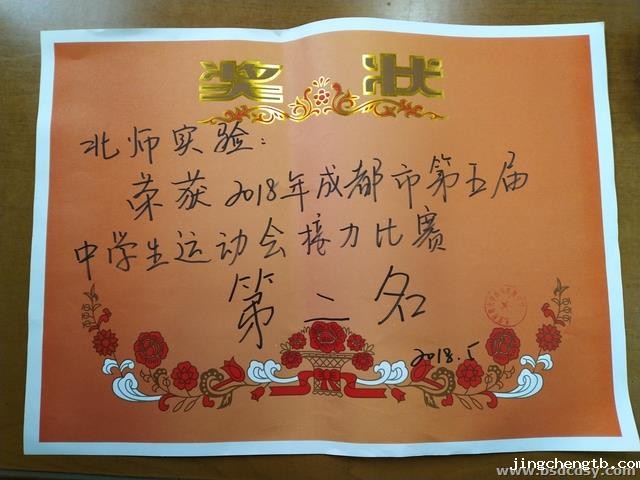 奖状
北师实验：
荣获2018年成都市第五届
中学生运动会接力比赛
第二名
2018.5
jingchengtb.com
www.bsdcdsy.com